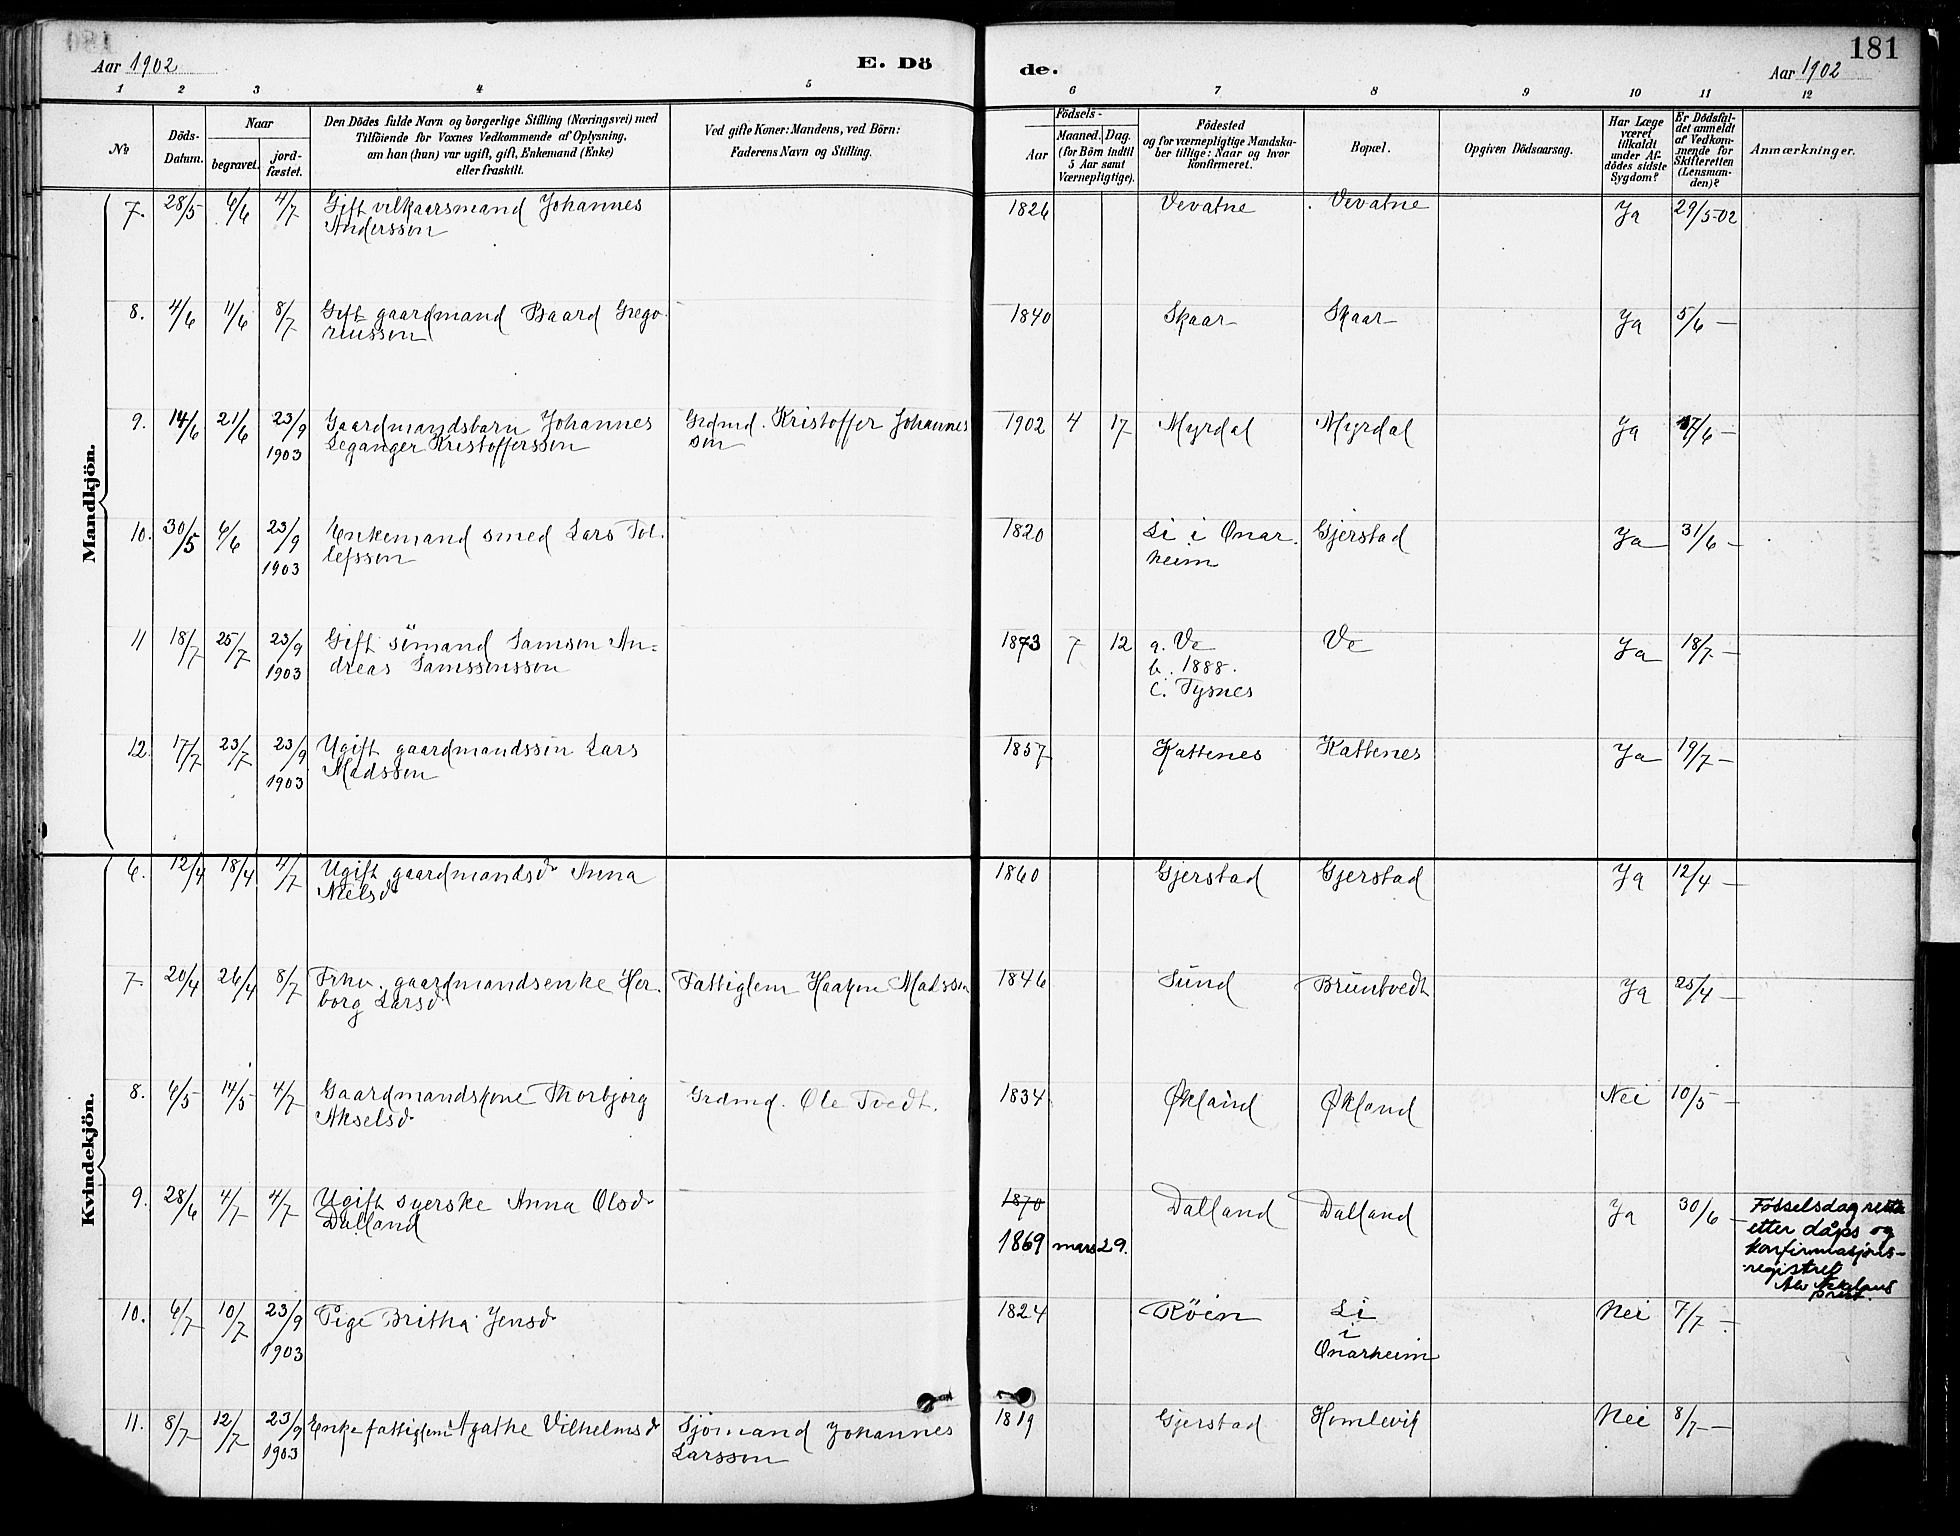 181
Aar 1902
E. Dö
de.
Aar 1902
1 2 3 4 5 6 7 8 9 10 11 12
No
Döds-
Datum.
Naar
begravet.
jord-
fæstet.
Den Dödes fulde Navn og borgerlige Stilling (Næringsvei) med
Tilföiende for Voxnes Vedkommende af Oplysning,
om han (hun) var ugift, gift, Enkemand (Enke)
eller fraskilt.
Ved gifte Koner: Mandens, ved Börn:
Faderens Navn og Stilling.
Födsels-
Aar
Maaned. Dag.
(for Börn indtil
5 Aar samt
Værnepligtige).
Födested
og for værnepligtige Mandska-
ber tillige: Naar og hvor
konfirmeret.
Bopæl.
Opgiven Dödsaarsag.
Har Læge
været
tilkaldt
under Af-
dödes sidste
Sygdom?
Er Dödsfal-
det anmeldt
af Vedkom-
mende for
Skifteretten
(Lensman-
den)?
Anmærkninger.
Mandkjön.
7. 28/5 6/6 4/7 Gift vilkaarsmand Johannes 1826 Vevatne Vevatne Ja 29/5-02
Anderssen
8. 4/6 11/6 8/7 Gift gaardmand Baard Grego 1840 Skaar Skaar Ja 5/6 –
riussen
9. 14/6 21/6 23/9 Gaardmandsbarn Johannes Grdmd. Kristoffer Johannes 1902 4 17 Myrdal Myrdal Ja 17/6 –
1903 Leganger Kristofferssen sen
10. 30/5 6/6 23/9 Enkemand smed Lars Tol- 1820 Li i Onar- Gjerstad Ja 31/6 –
1903 lefssen heim
11 18/7 25/7 23/9 Gift sömand Samson An- 1873 7 12 a. Ve Ve Ja 18/7 –
1903 dreas Samssonssen b. 1888.
c. Tysnes
12. 17/7 23/7 23/9 Ugift gaardmandssøn Lars 1857 Kattenes Kattenes Ja 19/7 –
1903 Madssen
Kvindekjön.
6. 12/4 18/4 4/7 Ugift gaardmandsd. Anna 1860 Gjerstad Gjerstad Ja 12/4 –
Nielsd
7 20/4 26/4 8/7 Frhv. gaardmandsenke Her- Fattiglem Haakon Madssen 1846 Sund Bruntvedt Ja 25/4 –
borg Larsd
8. 6/5 14/5 4/7 Gaardmandskone Thorbjørg Grdmd. Ole Tvedt. 1834 Økland Økland Nei 10/5 –
Akselsd.
9. 28/6 4/7 4/7 Ugift syerske Anna Olsd. 1870 Dalland Dalland Ja 30/6 – Fødselsdag rettet
Dalland etter dåps og
1869 mars 29. konfirmasjons-
registret
prest.
10. 6/7 10/7 23/9 Pige Britha Jensd. 1824 Røen Li Nei 7/7 –
1903 i
Onarheim
11. 8/7 12/7 23/9 Enke fattiglem Agathe Vilhelmsd Sjømand Johannes 1819 Gjerstad Homlevik Nei 8/7 –
1903 Larssen